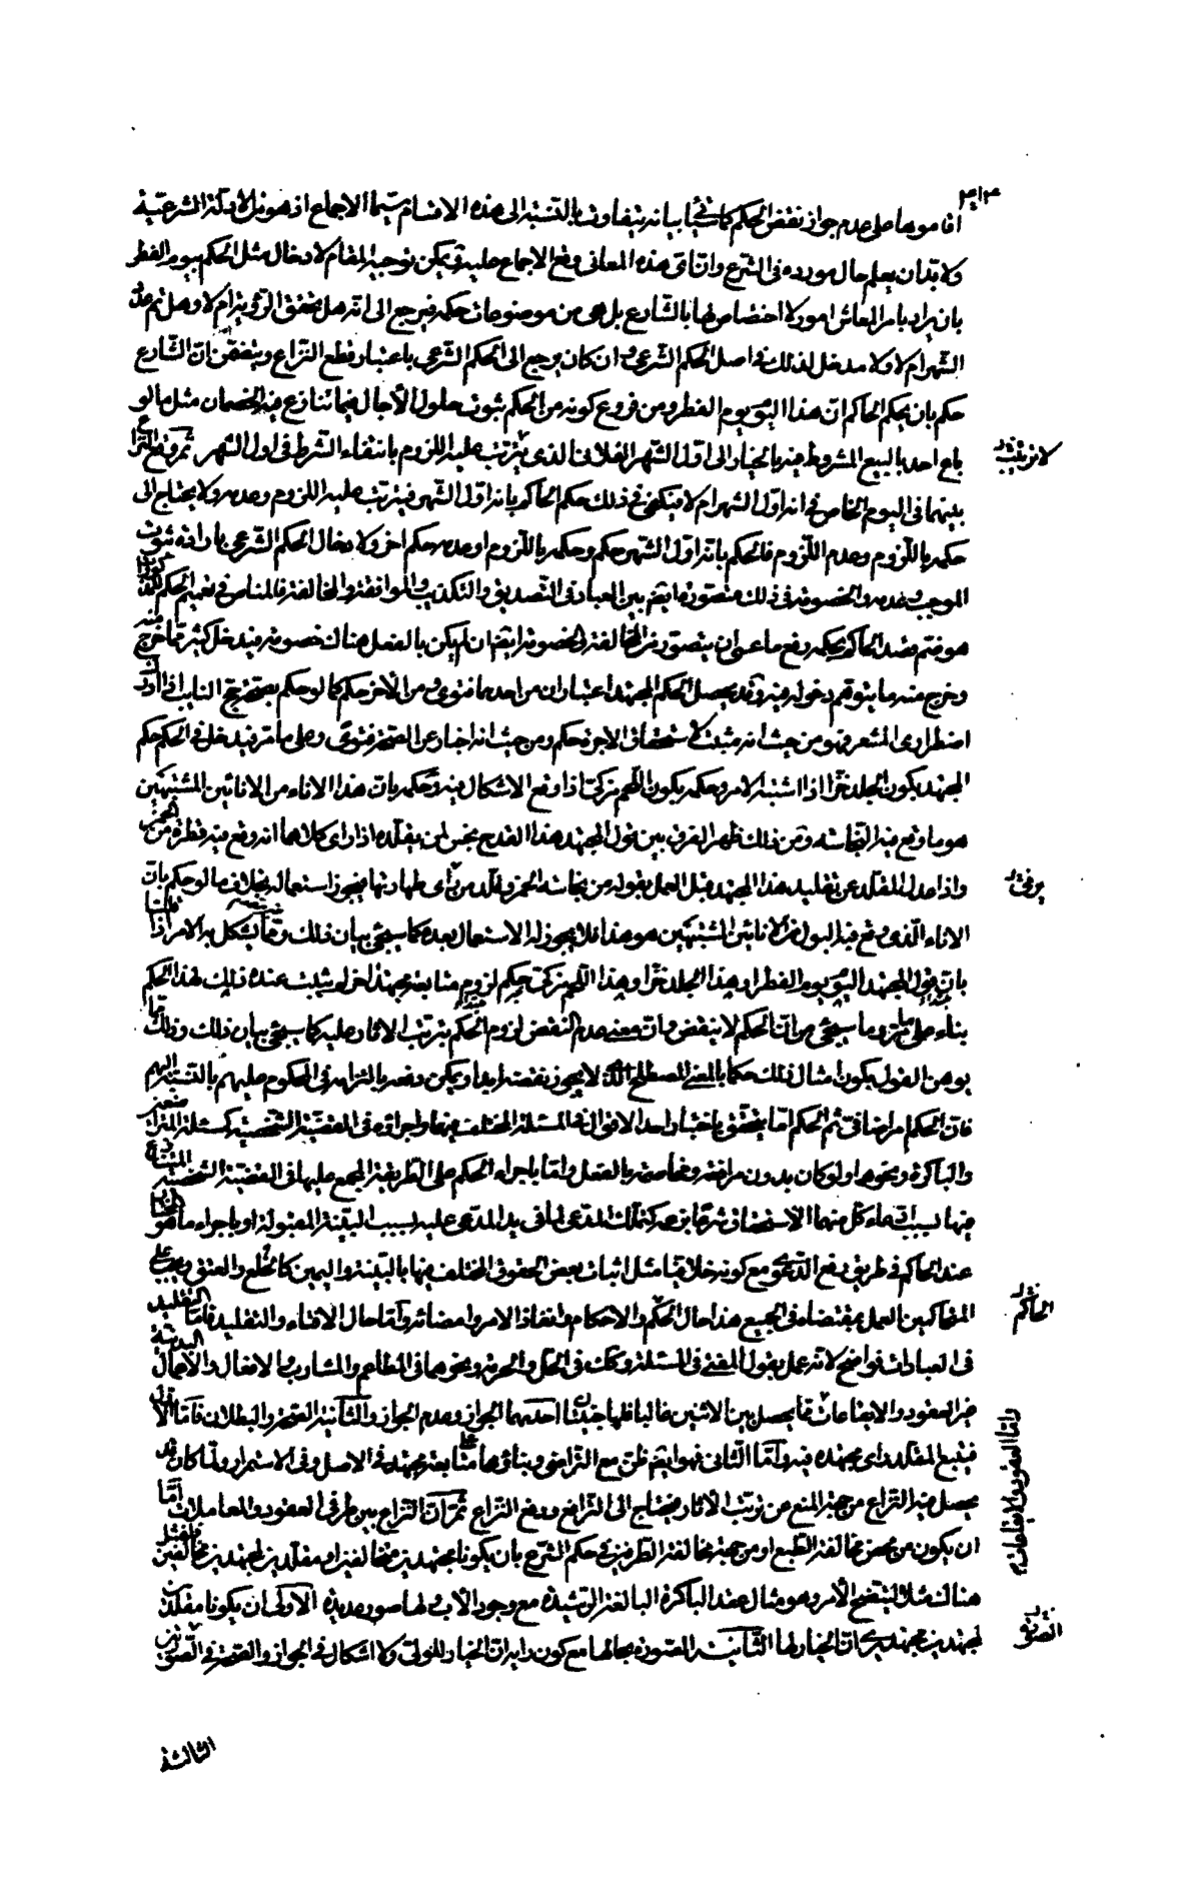 اقاموها على عدم جواز نقض الحكم كما سيأتي بيانه يتفاوت بالنسبة الى هذه الاقسام سيما الاجماع اذ هو من الادلة الشرعية
ولا بد ان يعلم حال مورده في الشرع وان اي هذه المعاني وقع الاجماع عليه ويمكن توجيه المقام لادخال مثل الحكم بيوم الفطر
بان يراد بامر المعاش امور لا اختصاص لها بالشارع بل هي من موضوعات حكمه فيرجع الى انه هل تحقق الرؤية ام لا وهل تم عدد
الشهر ام لا ولا مدخل لذلك في اصل الحكم الشرعي وان كان يرجع الى الحكم الشرعي باعتبار قطع النزاع ويتفق ان الشارع
حكم بان يحكم الحاكم ان هذا اليوم يوم الفطر ومن فروع كونه من الحكم ثبوت حلول الآجال فيما تنازع فيه الخصمان مثل ما لو
باع احد بالبيع المشروط فيه بالخيار الى اول الشهر الفلاني الذي يترتب عليه اللزوم بانتفاء الشرط في اول الشهر ثم وقع النزاع
بينهما في اليوم الخاص في انه اول الشهر ام لا فيكفي في ذلك حكم الحاكم بانه اول الشهر فيترتب عليه اللزوم وعدمه ولا يحتاج الى
حكمه باللزوم وعدم اللزوم فالحكم بانه اول الشهر حكم وحكمه باللزوم او عدمه حكم اخر ولادخال الحكم الشرعي بارادة ثبوت
الموجب وعدمه والخصومة في ذلك متصورة ايضا بين العباد في التصديق والتكذيب والموافقة والمخالفة فالمناص في تعميم الحكم
هو فتم قصد الحاكم بحكمه رفع ما عسى ان يتصور من المخالفة والخصومة ايضا ان لم يكن بالفعل هناك خصومة فيدخل كثير مما خرج منه
وخرج منه ما يتوهم دخوله فيه وقد يحصل لحكم المجتهد اعتباران من احدهما فتوى ومن الآخر حكم كما لو حكم بصحة حج النايب اذا ادرك
اضطراري المشعر فهو من حيث انه مثبت لاستحقاق الاجرة حكم ومن حيث انه اخبار عن الصحة فتوى وعلى ما مر فيدخل في الحكم حكم
المجتهد بكون الجلد خزا اذا اشتبه الامر وحكمه بكون اللحم مزكى اذا وقع الاشكال فيه وحكمه بان هذا الاناء من الانائين المشتبهين
هو ما وقع فيه النجاسة ومن ذلك ظهر الفرق بين قول المجتهد هذا القدح نجس لمن يقلده اذا راى كلاهما انه وقع فيه قطرة من الخمر
واذا عدل المقلد عن تقليد هذا المجتهد قبل العمل بقوله من نجاسة الخمر وقلد من راى طهارتها فيجوز استعماله بخلاف ما لو حكم بان
الاناء الذي وقع فيه البول من الانائين المشتبهين هو هذا فلا يجوز له الاستعمال بعده كما سيجئ بيان ذلك وقد يشكل الامر اذا قلنا
بان قول المجتهد اليوم يوم الفطر او هذا الجلد خز او هذا اللحم مزكى حكم لزوم متابعة مجتهد اخر لم يثبت عنده ذلك لهذا الحكم
بناء على ما مر وما سيجئ من ان الحكم لا ينقض وان معنى عدم النقض لزوم الحكم بترتب الاثار عليه كما سيجئ بيان ذلك وذلك مما
يوهن القول بكون امثال ذلك حكما بالمعنى المصطلح الذي لا يجوز نقضه ابدا ويمكن دفعه بالتزامه في المحكوم عليهم بالنسبة اليهم
فان الحكم امر اضافي ثم الحكم اما يتحقق باختيار احد الاقوال في المسئلة المختلف فيها واجرائه في القضية الشخصية كمسئلة
والباكرة ونحوها ولو كان بدون مرافعة ومخاصمة بالفعل واما باجراء الحكم على الطريقة المجمع عليها في القضية الشخصية المتنازع
فيها بسبب ادعاء كل منهما الاستحقاق شرعا من جهة كتملك المدعى لما في يد المدعى عليه بسبب البينة المقبولة او باجراء ما هو المختار
عند الحاكم في طريق رفع الدعوى مع كونه خلافيا مثل اثبات بعض الحقوق المختلف فيها بالبينة واليمين كالخلع والعتق ويجب على
المتحاكمين العمل بمقتضاه في الجميع هذا حال الحكم والاحكام وانفاذ الامر وامضائه واما حال الافتاء والتقليد فاما التقليد
في العبادات فواضح لانه عمل بقول المفتي في المسئلة وكذلك في الحل والحرمة ونحوها في المطاعم والمشارب والافعال والاعمال البدنية
غير العقود والايقاعات مما يحصل بين الاثنين غالبا فلها احدهما الجواز وعدم الجواز والثانية الصحة والبطلان فاما الاول
فيتبع المقلد راى مجتهده فيه واما الثاني فهو ايضا مع التراضي وبنائهما على متابعة مجتهد في الاصل وفي الاستمرار ولما كان قد
يحصل فيه النزاع من جهة المنع عن ترتب الاثار فيحتاج الى الترافع ورفع النزاع ثم ان النزاع بين طرفي العقود والمعاملات اما
ان يكون من محض مخالفة الطبع او من جهة مخالفة الطرفين في حكم الشرع بان يكونا مجتهدين متخالفين او مقلدين لمجتهدين متخالفين فلنمثل
هنا لك مثلا ليتضح الأمر وهو مثال عقد الباكرة البالغة الرشيدة مع وجود الأب ولها صور عديدة الاولى ان يكونا مقلدين
لمجتهدين مجتهد يرى ان الخيار لها الثانية الصورة بحالها مع كون رايه ان الخيار للولي ولا اشكال في الجواز والصحة في الصورتين
لانه يفيد
يرفض
الحاكم
واما العقود والايقاعات
الصورة
الثالثة